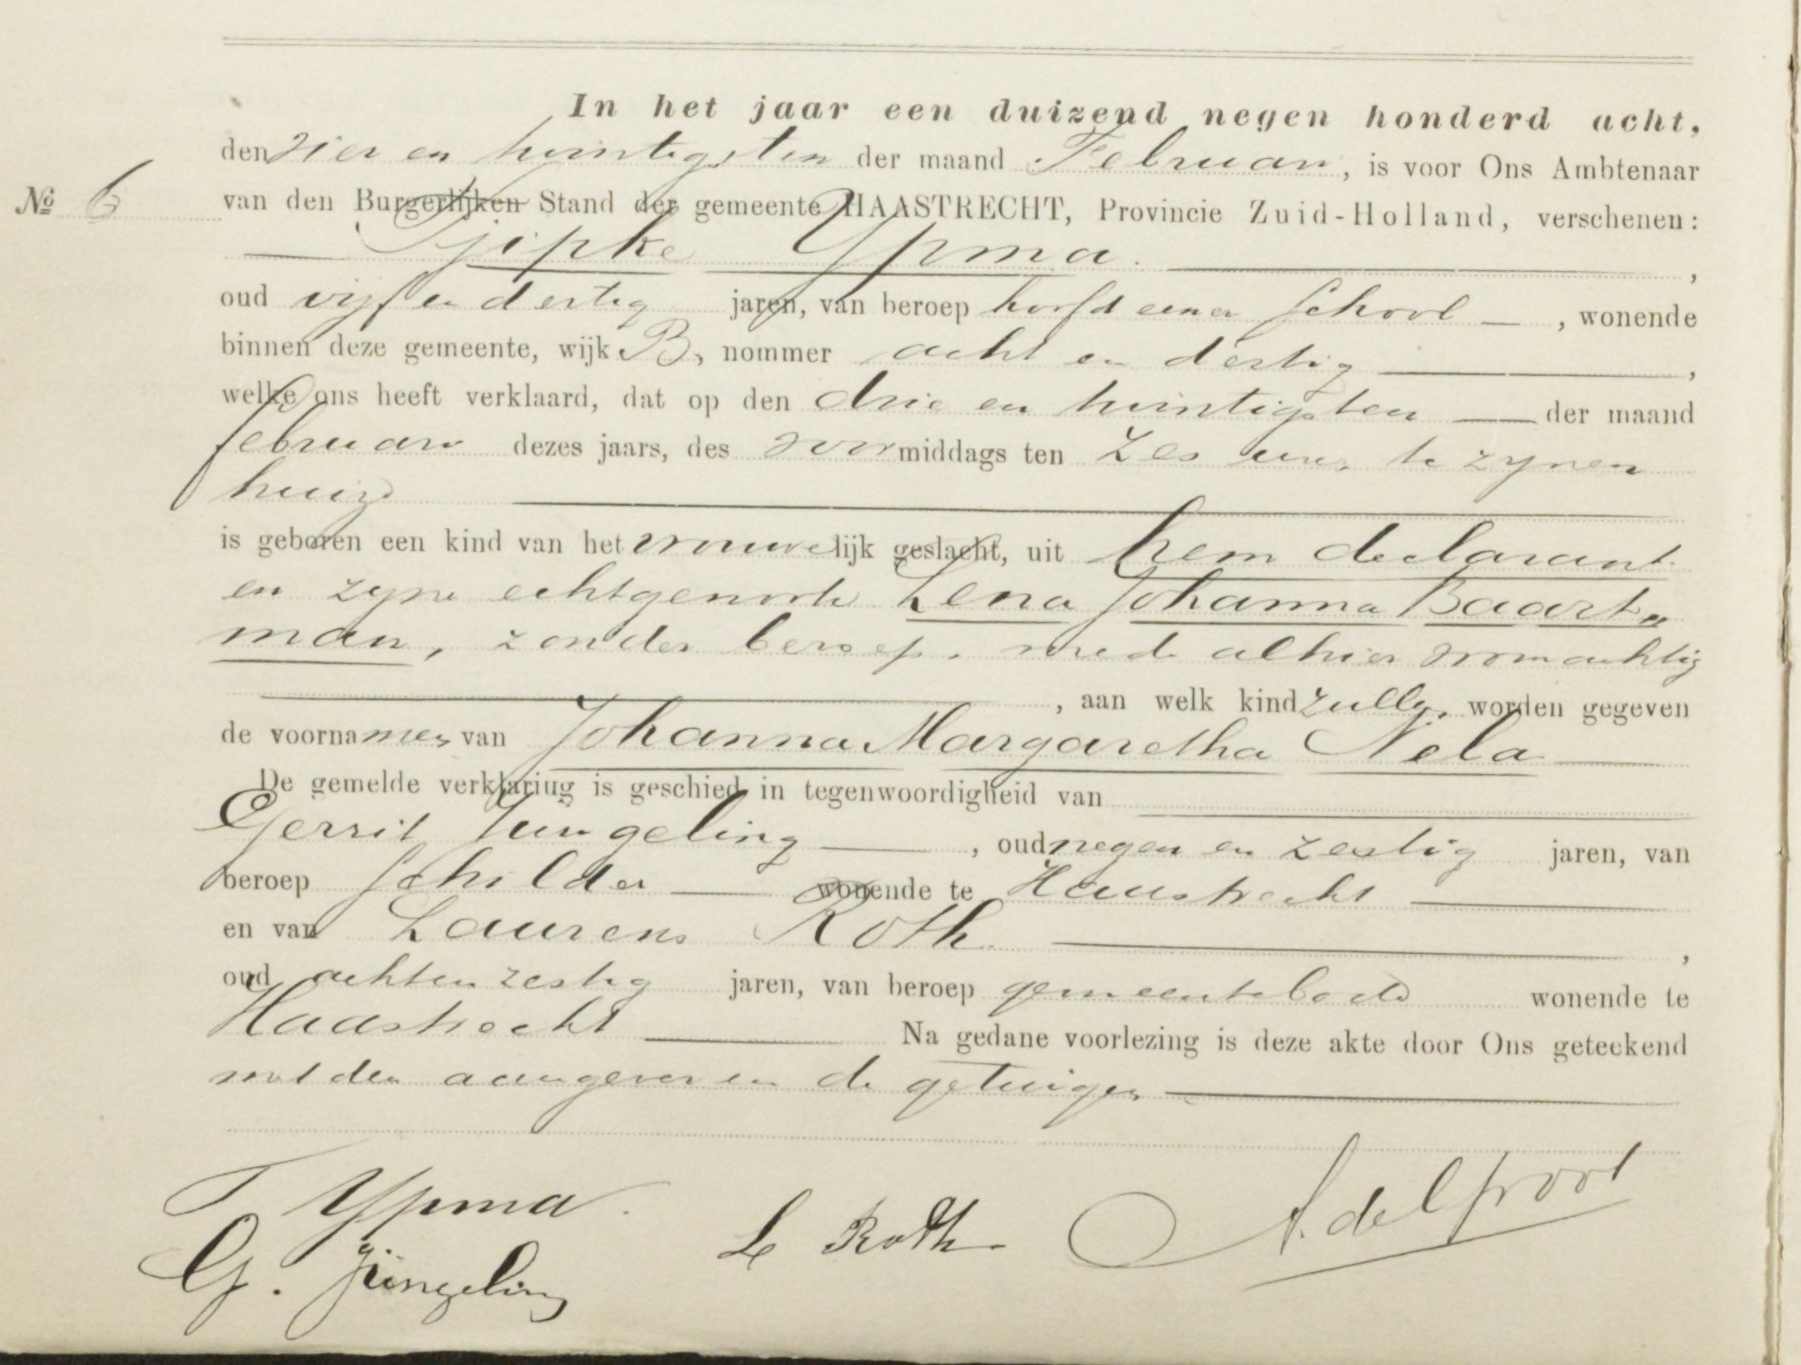 In het jaar een duizend negen honderd acht,
den vier en twintigsten der maand Februari, is voor Ons Ambtenaar
№ 6 van den Burgerlijken Stand der gemeente HAASTRECHT, Provincie Zuid-Holland, verschenen:
Tjipke Ypma.
oud vijf en dertig jaren, van beroep hoofd eener school, wonende
binnen deze gemeente, wijk B, nommer acht en dertig,
welke ons heeft verklaard, dat op den drie en twintigsten der maand
februari dezes jaars, des voormiddags ten zes ure, te zijnen
huize
is geboren een kind van het vrouwelijk geslacht, uit hem declarant
en zijne echtgenoote Lena Johanna Baart„
man, zonder beroep, mede alhier woonachtig
, aan welk kind zullen worden gegeven
de voornamen van Johanna Margaretha Nela
De gemelde verklaring is geschied in tegenwoordigheid van
Gerrit Jüngeling, oud negen en zestig jaren, van
beroep schilder wonende te Haastrecht
en van Laurens Roth,
oud acht en zestig jaren, van beroep gemeentebode wonende te
Haastrecht Na gedane voorlezing is deze akte door Ons geteekend
met den aangever en de getuigen
T Ypma.
G. Jüngeling
L Roth